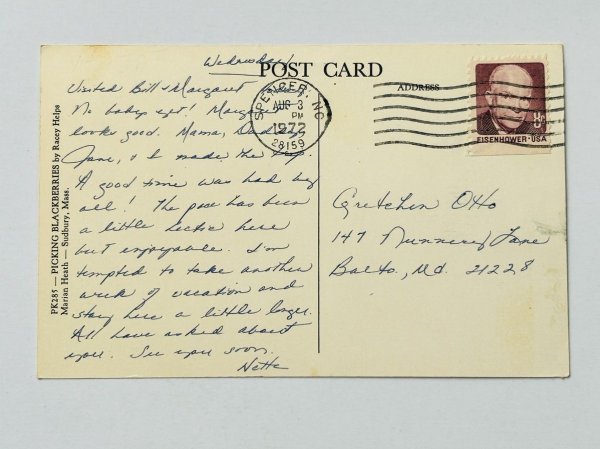 Wednesday
POST CARD
ADDRESS
SPENCER, NC
AUG 3
PM
1972
28159
8c
EISENHOWER·USA
PK285 — PICKING BLACKBERRIES by Racey Helps
Marian Heath — Sudbury, Mass.
Visited Bill & Margaret
No baby yet! Margaret
looks good. Mama, Daddy,
Jane, & I made the trip.
A good time was had by
all! The pace has been
a little hectic here
but enjoyable. I'm
tempted to take another
week of vacation and
stay here a little longer.
All have asked about
you. See you soon.
Netta
Gretchen Otto
147 Nunnery Lane
Balto, Md. 21228